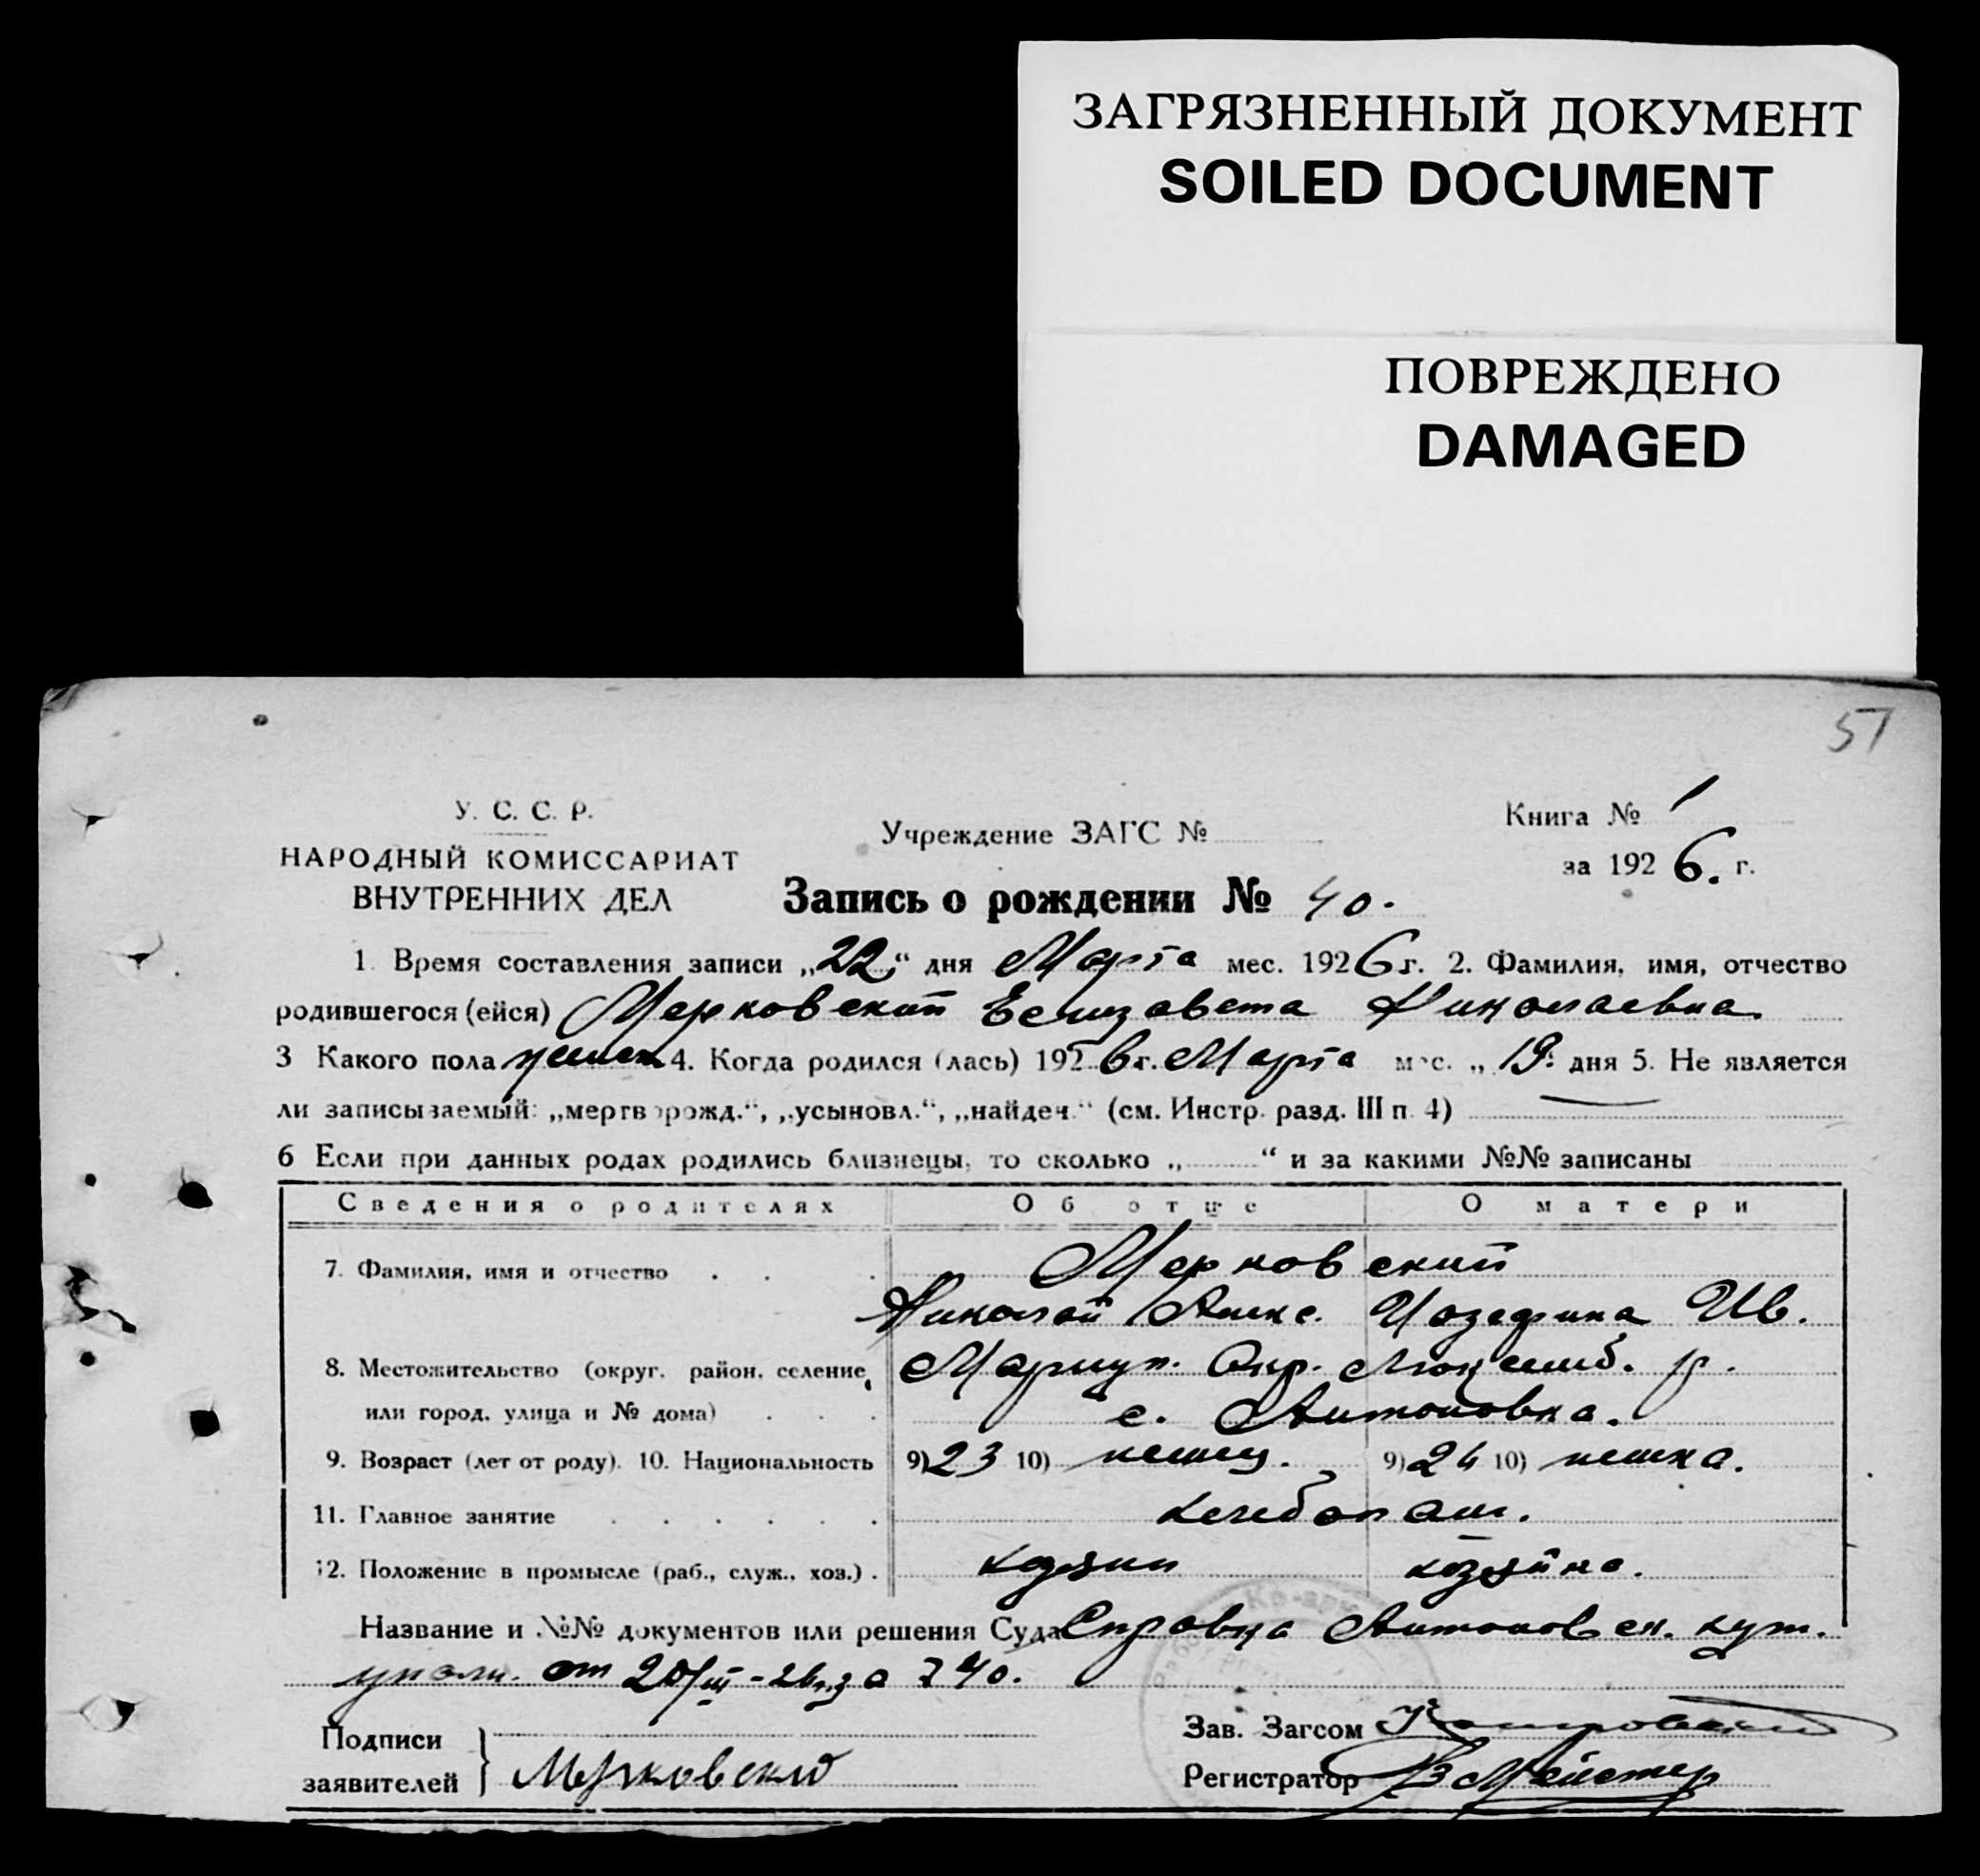 ЗАГРЯЗНЕННЫЙ ДОКУМЕНТ
SOILED DOCUMENT
ПОВРЕЖДЕНО
DAMAGED
51
У. С. С. Р.
НАРОДНЫЙ КОМИССАРИАТ
ВНУТРЕННИХ ДЕЛ
Учреждение ЗАГС №
Книга № 1
за 1926. г.
Запись о рождении № 40.
1. Время составления записи „22“ дня Марта мес. 1926 г. 2. Фамилия, имя, отчество
родившегося (ейся) Мерковский Елизавета Николаевна
3 Какого пола женск 4. Когда родился (лась) 1926 г. Марта мес. „19“ дня 5. Не является
ли записываемый: „мертворожд.“, „усыновл.“, „найден.“ (см. Инстр. разд. III п. 4) —
6 Если при данных родах родились близнецы, то сколько „ “ и за какими №№ записаны
Сведения о родителях Об отце О матери
7. Фамилия, имя и отчество Мерковский
Николай Алекс. Иозефина Ив.
8. Местожительство (округ, район, селение, Мариуп. Окр. Люксемб. р.
или город, улица и № дома) с. Антоновка.
9. Возраст (лет от роду). 10. Национальность 9) 23 10) немец. 9) 24 10) немка.
11. Главное занятие хлебопаш.
12. Положение в промысле (раб., служ., хоз.) хозяин хозяйка.
Название и №№ документов или решения Суда Справка Антоновск. хут.
уполн. от 20/III-26 г. за № 40.
Подписи
заявителей } Мерковский
Зав. Загсом
Регистратор Мейстер